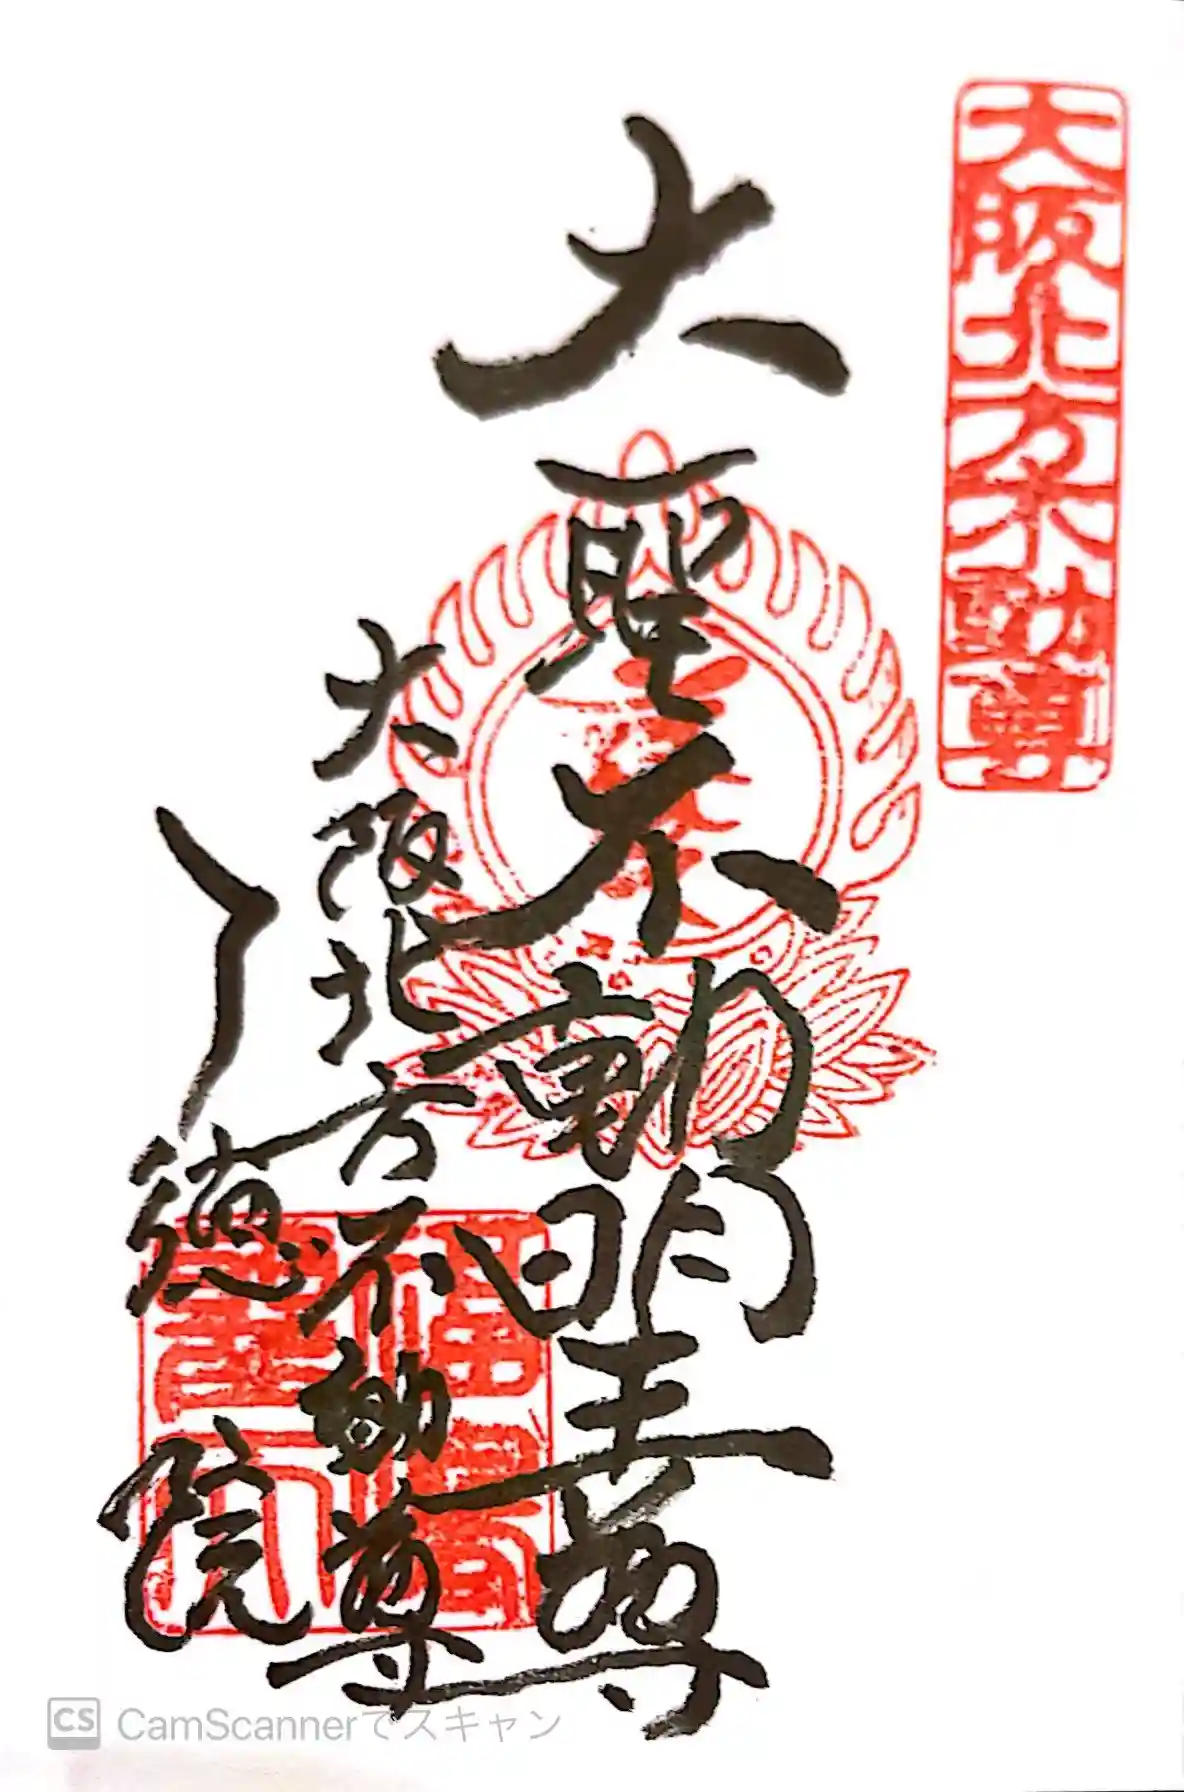 大阪北方不動尊
大聖不動明王尊
大阪北方不動尊
了徳院
CamScannerでスキャン